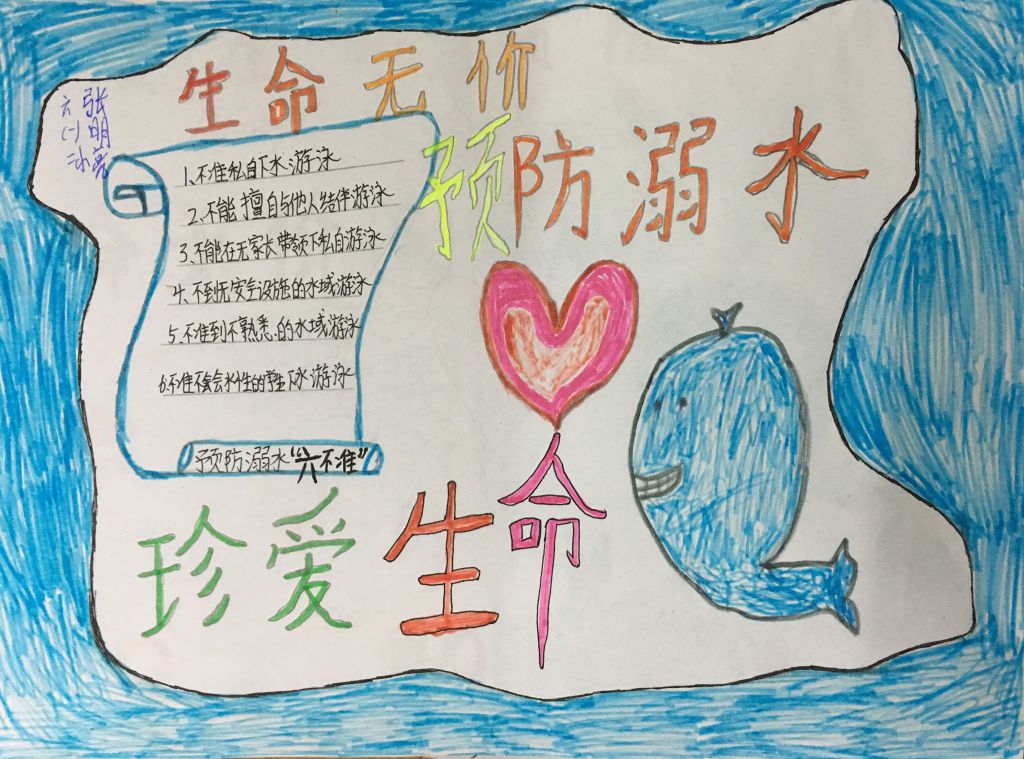 生命无价
预防溺水
六(一)
张明亮
1、不准私自下水游泳
2、不能擅自与他人结伴游泳
3、不能在无家长带领下私自游泳
4、不到无安全设施的水域游泳
5、不准到不熟悉的水域游泳
6.不准不会水性的学生下水游泳
预防溺水“六不准”
珍爱生命